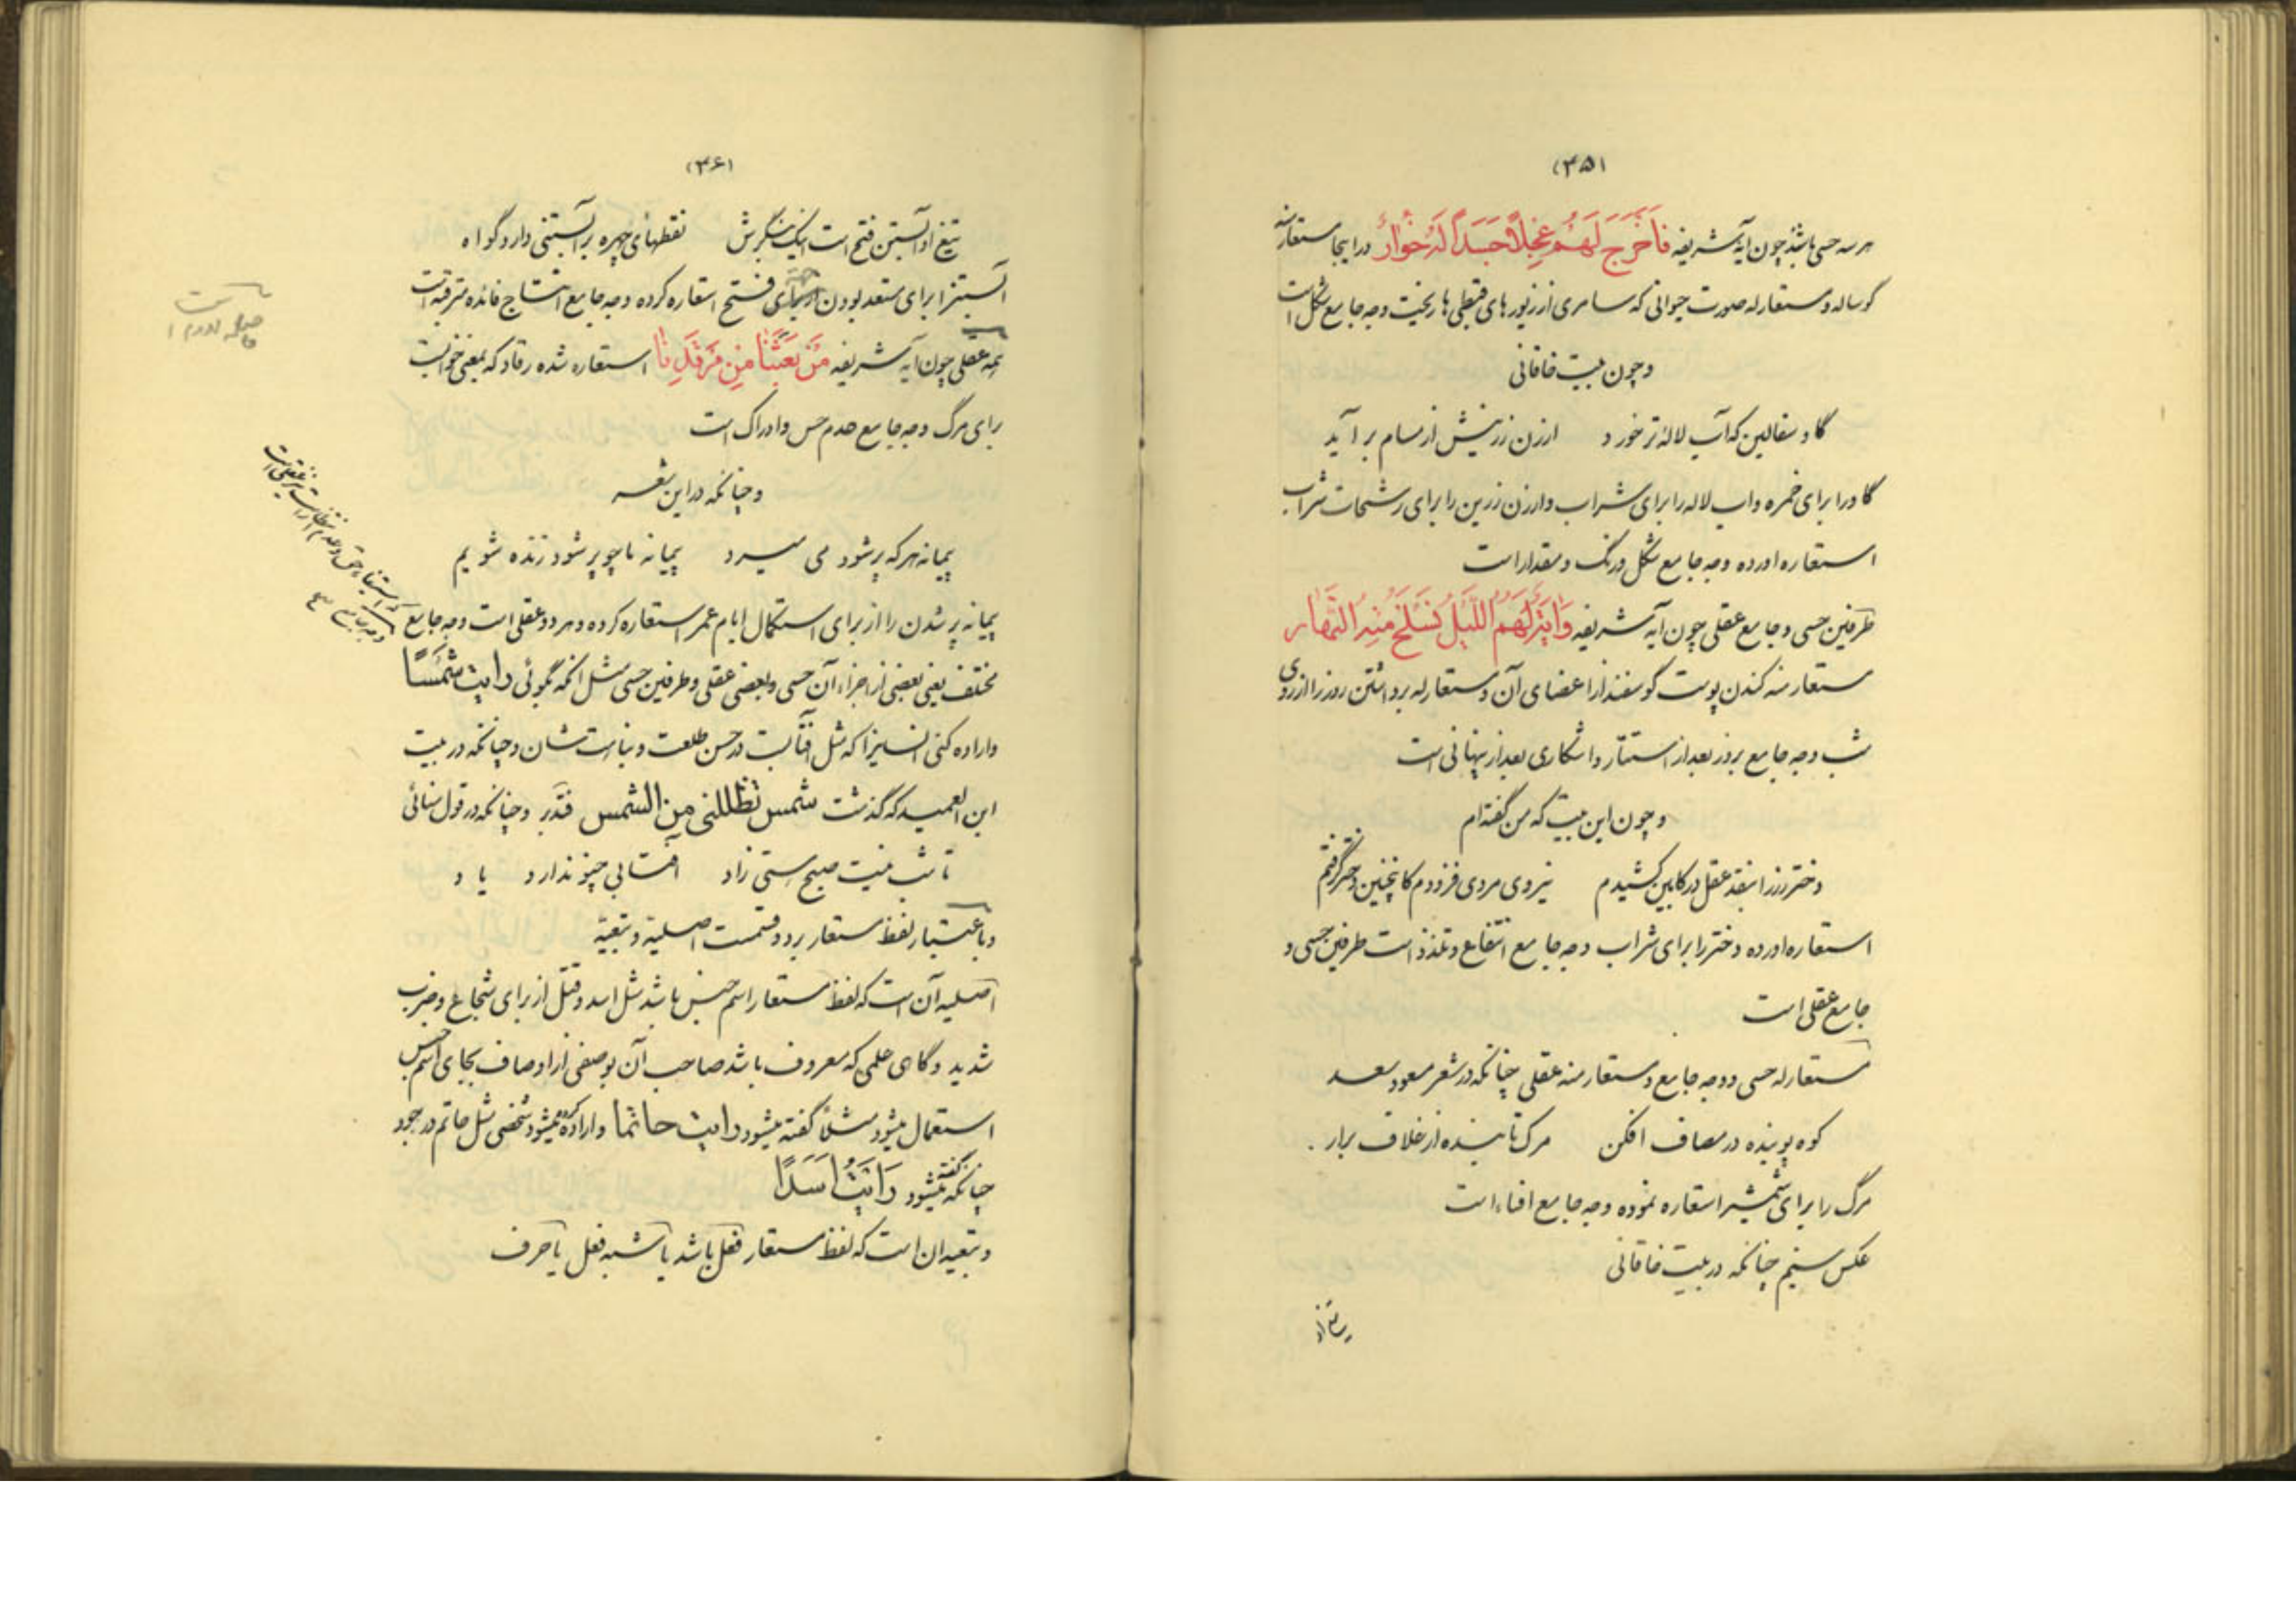 (۳۵)
هر سه حسی باشد چون آیه شریفه فَاَخْرَجَ لَهُمْ عِجْلاً جَسَداً لَهُ خُوارٌ در اینجا مستعار منه
گوساله و مستعار له صورت حیوانی که سامری از زیورهای قبطی ها ریخت وجه جامع شکل است
و چون بیت خاقانی
گاو سفالین که آب لاله تر خورد ارزن زرینش از مسام برآید
گاو را برای خمره و اب لاله را برای شراب و ارزن زرین را برای رشحات شراب
استعاره اورده وجه جامع شکل و رنگ و مقدار است
طرفین حسی و جامع عقلی چون آیه شریفه وَایَةٌ لَهُمُ اللَّیْلُ نَسْلَخُ مِنْهُ النَّهارَ
مستعار منه کندن پوست گوسفند از اعضای آن و مستعار له برداشتن روز را از روی
شب وجه جامع بروز بعد از استتار و اشکاری بعد از پنهانی است
و چون این بیت که من گفته ام
دختر رز را بنقد عقل در کابین کشیدم نیروی مردی فزودم کاینچنین دختر گرفتم
استعاره اورده دختر را برای شراب وجه جامع انتفاع و تلذذ است طرفین حسی و
جامع عقلی است
مستعار له حسی و وجه جامع و مستعار منه عقلی چنانکه در شعر مسعود سعد
کوه پوینده در مصاف افکن مرک تابنده از غلاف برار
مرگ را برای شمشیر استعاره نموده وجه جامع افناء است
عکس سیم چنانکه در بیت خاقانی
(۳۶)
تیغ او آبستن فتح است اینک بنگرش نقطهای چهره بر آبستنی دارد گواه
آبستن را برای مستعد بودن برای فتح استعاره کرده وجه جامع انتاج فائده مترقبه است
همه عقلی چون آیه شریفه مَنْ بَعَثَنا مِن مَرْقَدِنا استعاره شده رقاد که بمعنی خوابست
برای مرگ وجه جامع عدم حس و ادراک است
و چنانکه در این شعر
پیمانه هر که پر شود می میرد پیمانه ما چو پر شود زنده شویم
پیمانه پر شدن را از برای استکمال ایام عمر استعاره کرده و هر دو عقلی است وجه جامع
مختلف یعنی بعضی از اجزاء آن حسی و بعضی عقلی و طرفین حسی مثل انکه بگوئی رایت شمسًا
و اراده کنی انسانیرا که مثل افتابست در حسن طلعت و نباهت شان و چنانکه در بیت
ابن العمید که گذشت شمس تظللنی من الشمس فتدبر و چنانکه در قول سنائی
تا شب نیست صبح هستی زاد افتابی چنو ندارد یاد
و باعتبار لفظ مستعار بر دو قسمت اصلیة و تبعیة
اصلیه آن است که لفظ مستعار اسم جنس باشد مثل اسد و قتل از برای شجاع و ضرب
شدید و گاهی علمی که معروف باشد صاحب آن بوصفی از اوصاف بجای اسم جنس
استعمال میشود مثلاً گفته میشود رایت حاتما و اراده کرده میشود شخصی مثل حاتم در جود
چنانکه گفته میشود رَاَیْتُ اَسَدًا
و تبعیه ان است که لفظ مستعار فعل باشد یا شبه فعل یا حرف